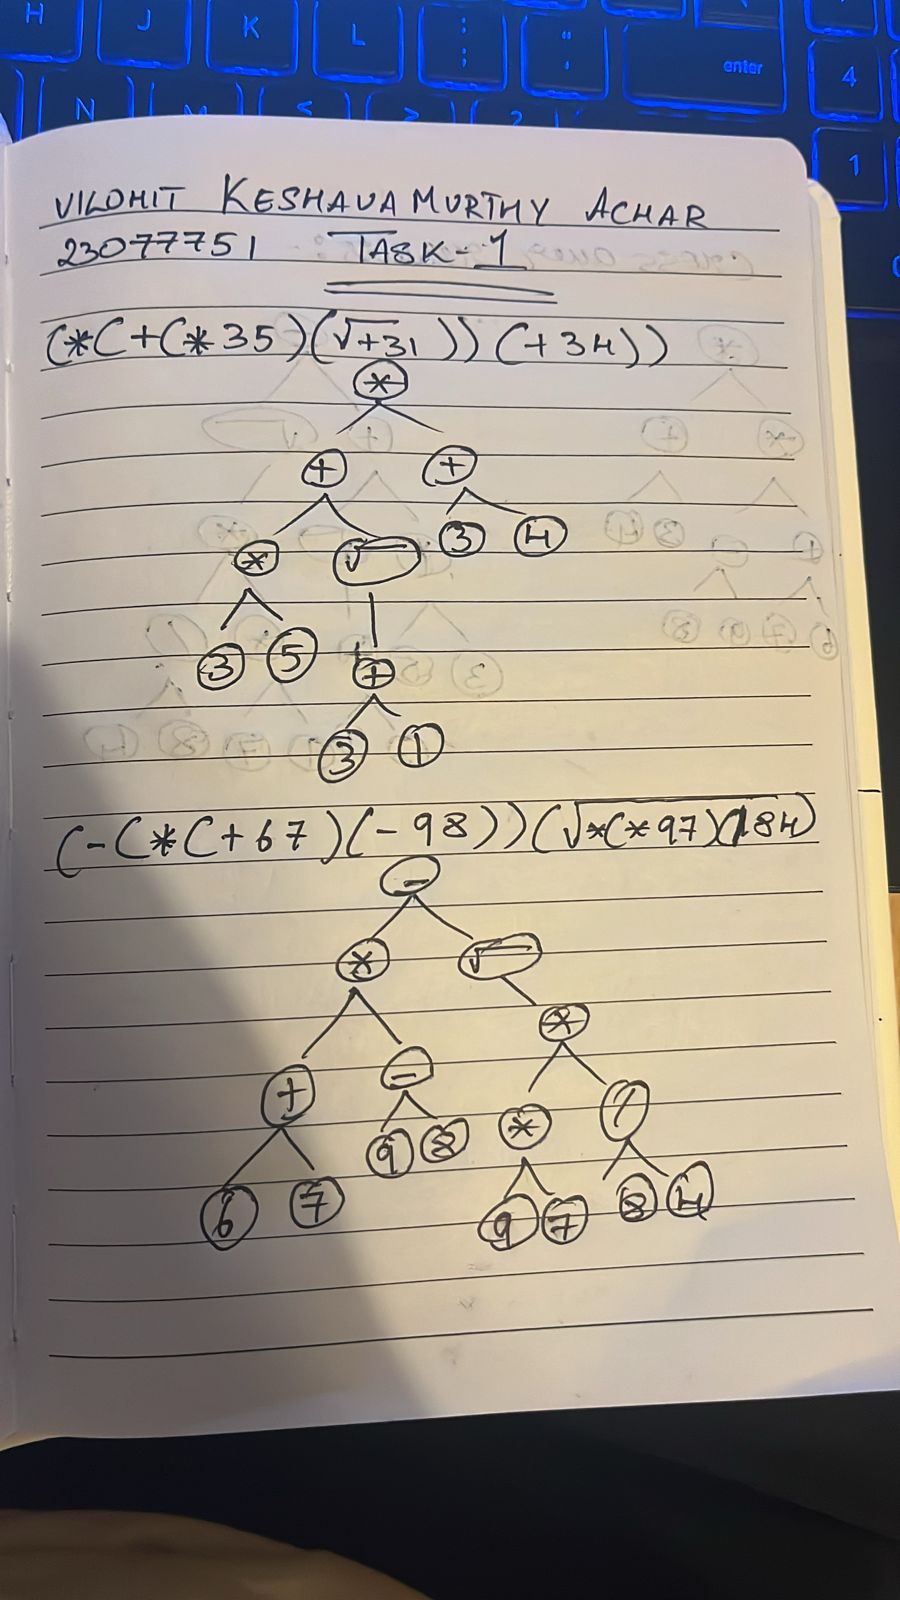 H J K L : ; " ' enter 4
N M < > ? 1
VILOHIT KESHAVAMURTHY ACHAR
23077751 TASK-1
(*(+(*35)(√+31))(+34))
*
+ +
* √ 3 4
3 5 +
3 1
(-(*(+67)(-98))(√*(*97)(/84)
-
* √
*
+ - * /
9 8
6 7 9 7 8 4